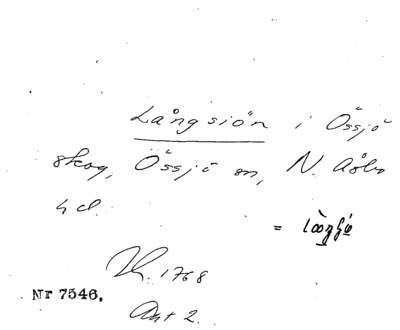 Långsiön i Össjö
skog, Össjö sn, N. Åsbo
hd.
=
Nr 7546.
1768
Akt 2.